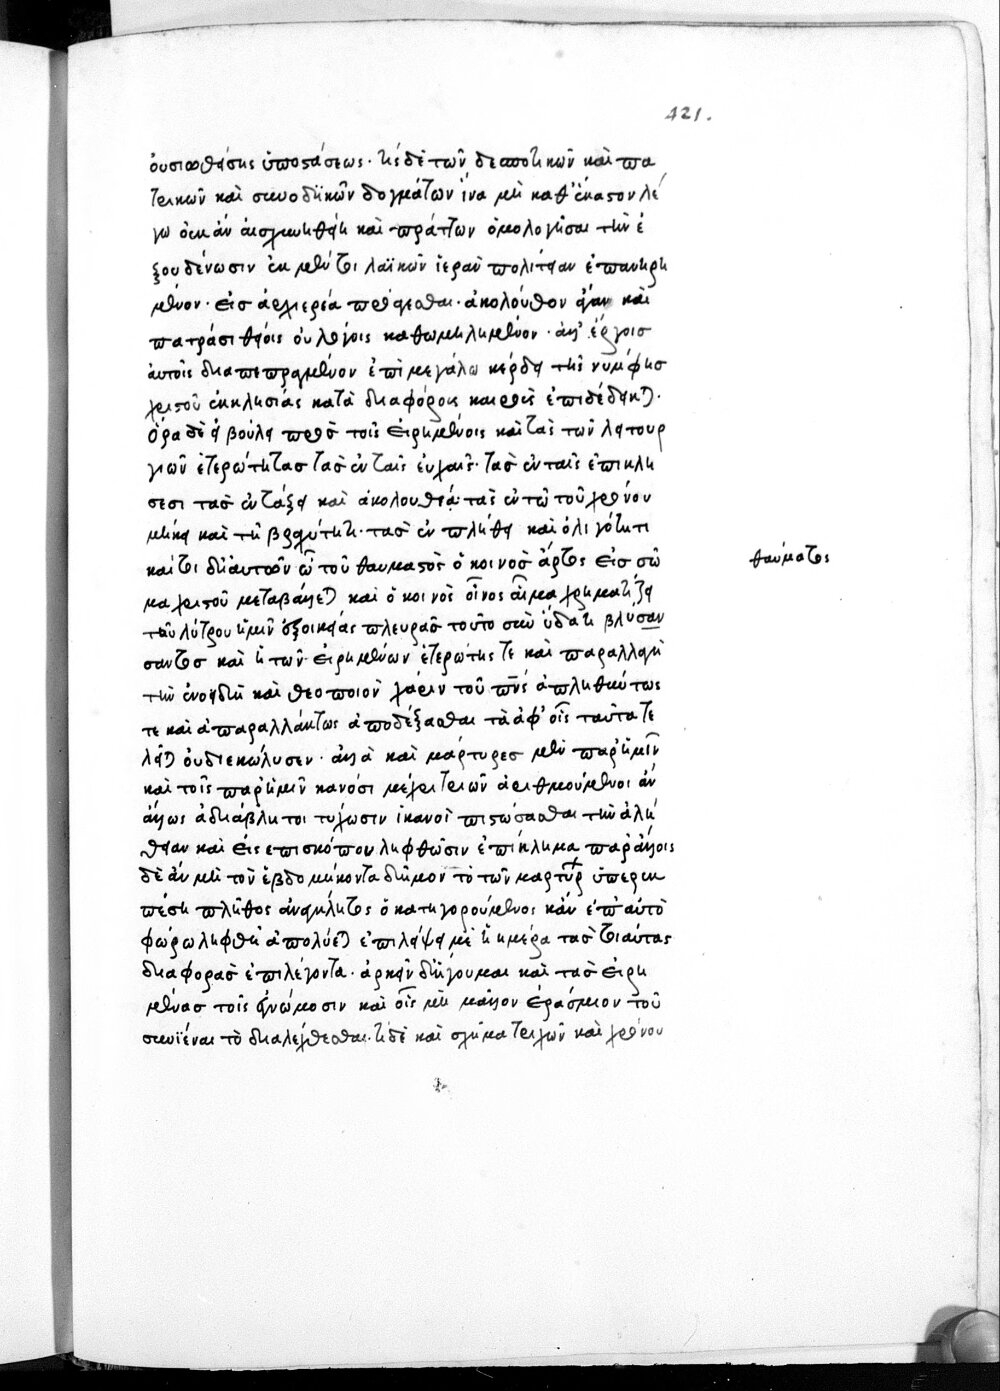 421.
οὐσιωθείσης ὑποστάσεως· τίς δὲ τῶν δεσποτικῶν καὶ πα
τρικῶν καὶ συνοδικῶν δογμάτων ἵνα μὴ καθ' ἕκαστον λέ
γω οὐκ ἂν αἰσχυνθείη καὶ πράττων ὁμολογῆσαι τὴν ἐ
ξουδένωσιν ἐκ μέντοι λαϊκῶν ἱερὰν πολιτείαν ἐπανῃρη
μένον· εἰς ἀρχιερέα προάγεσθαι· ἀκόλουθον καὶ
πατράσι θείοις οὐ λόγοις καθωμιλημένον· ἀλλ' ἔργοις
αὐτοῖς διαπεπραγμένον ἐπὶ μεγάλῳ κέρδει τῆς νύμφης
χριστοῦ ἐκκλησίας κατὰ διαφόρους καιροὺς ἐπιδέδεικται.
Ὅρα δὲ εἰ βούλει πρὸς τοῖς εἰρημένοις καὶ τὰς τῶν λειτουρ
γιῶν ἑτερότητας τὰς ἐν ταῖς εὐχαῖς· τὰς ἐν ταῖς ἐπικλή
σεσι τὰς ἐν τάξει καὶ ἀκολουθίᾳ· τὰς ἐν τῷ τοῦ χρόνου
μήκει καὶ τῇ βραχύτητι· τὰς ἐν πλήθει καὶ ὀλιγότητι
καίτοι δι' αὐτῶν ὢ τοῦ θαύματος ὁ κοινὸς ἄρτος εἰς σῶ
θαύματος
μα χριστοῦ μεταβάλλεται καὶ ὁ κοινὸς οἶνος αἷμα χρηματίζει
τοῦ λύτρου ἡμῖν ἐξ οἰκείας πλευρᾶς τοῦτο σὺν ὕδατι βλύσαν
σαντος καὶ ἡ τῶν εἰρημένων ἑτερότης τε καὶ παραλλαγὴ
τὴν ἑνοειδῆ καὶ θεοποιὸν χάριν τοῦ πνς ἀπληθύντως
τε καὶ ἀπαραλλάκτως ἀποδέξασθαι τὰ ἀφ' οἷς ταῦτα τε
λεῖται οὐ διεκώλυσεν· ἀλλὰ καὶ μάρτυρες μὲν παρ' ἡμῖν
καὶ τοῖς παρ' ἡμῖν κανόσι μέχρι τριῶν ἀριθμούμενοι ἂν
ἄλλως ἀδιάβλητοι τύχωσιν ἱκανοὶ πιστώσασθαι τὴν ἀλή
θειαν κἂν εἰς ἐπισκόπου ληφθῶσιν ἐπίκλημα παρ' ἄλλοις
δὲ ἂν μὴ τὸν ἑβδομήκοντα δύο μόνον τὸ τῶν μαρτύρ ὑπερεκ
πέσῃ πλῆθος ἀνεγκλήτως ὁ κατηγορούμενος κἂν ἐπ' αὐτο
φώρῳ ληφθῇ ἀπολύεται ἐπιλείψει με ἡ ἡμέρα τὰς τοιαύτας
διαφορὰς ἐπιλέγοντα· ἀρκεῖν δὲ ἡγοῦμαι καὶ τὰς εἰρη
μένας τοῖς εὐγνώμοσιν καὶ οἷς μὴ μᾶλλον ἐράσμιον τοῦ
συνιέναι τὸ διαλέγεσθαι· τί δὲ καὶ σχῆμα τριχῶν καὶ χρόνου